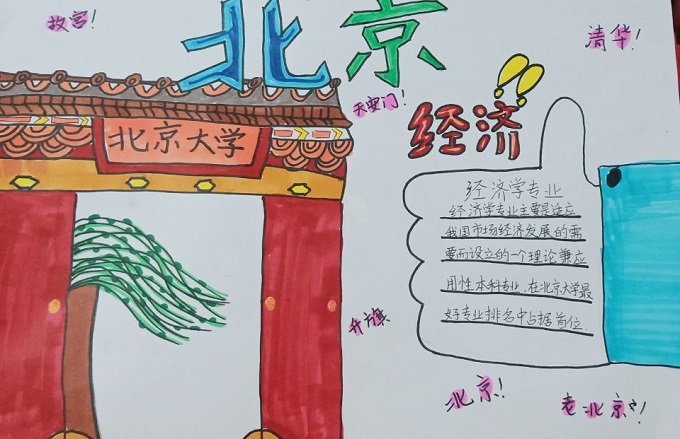 北京
故宫！
清华！
天安门！
经济!!
北京大学
经济学专业
经济学专业主要是适应
我国市场经济发展的需
要而设立的一个理论兼应
用性本科专业，在北京大学最
好专业排名中占据首位
升旗
北京！
老北京！